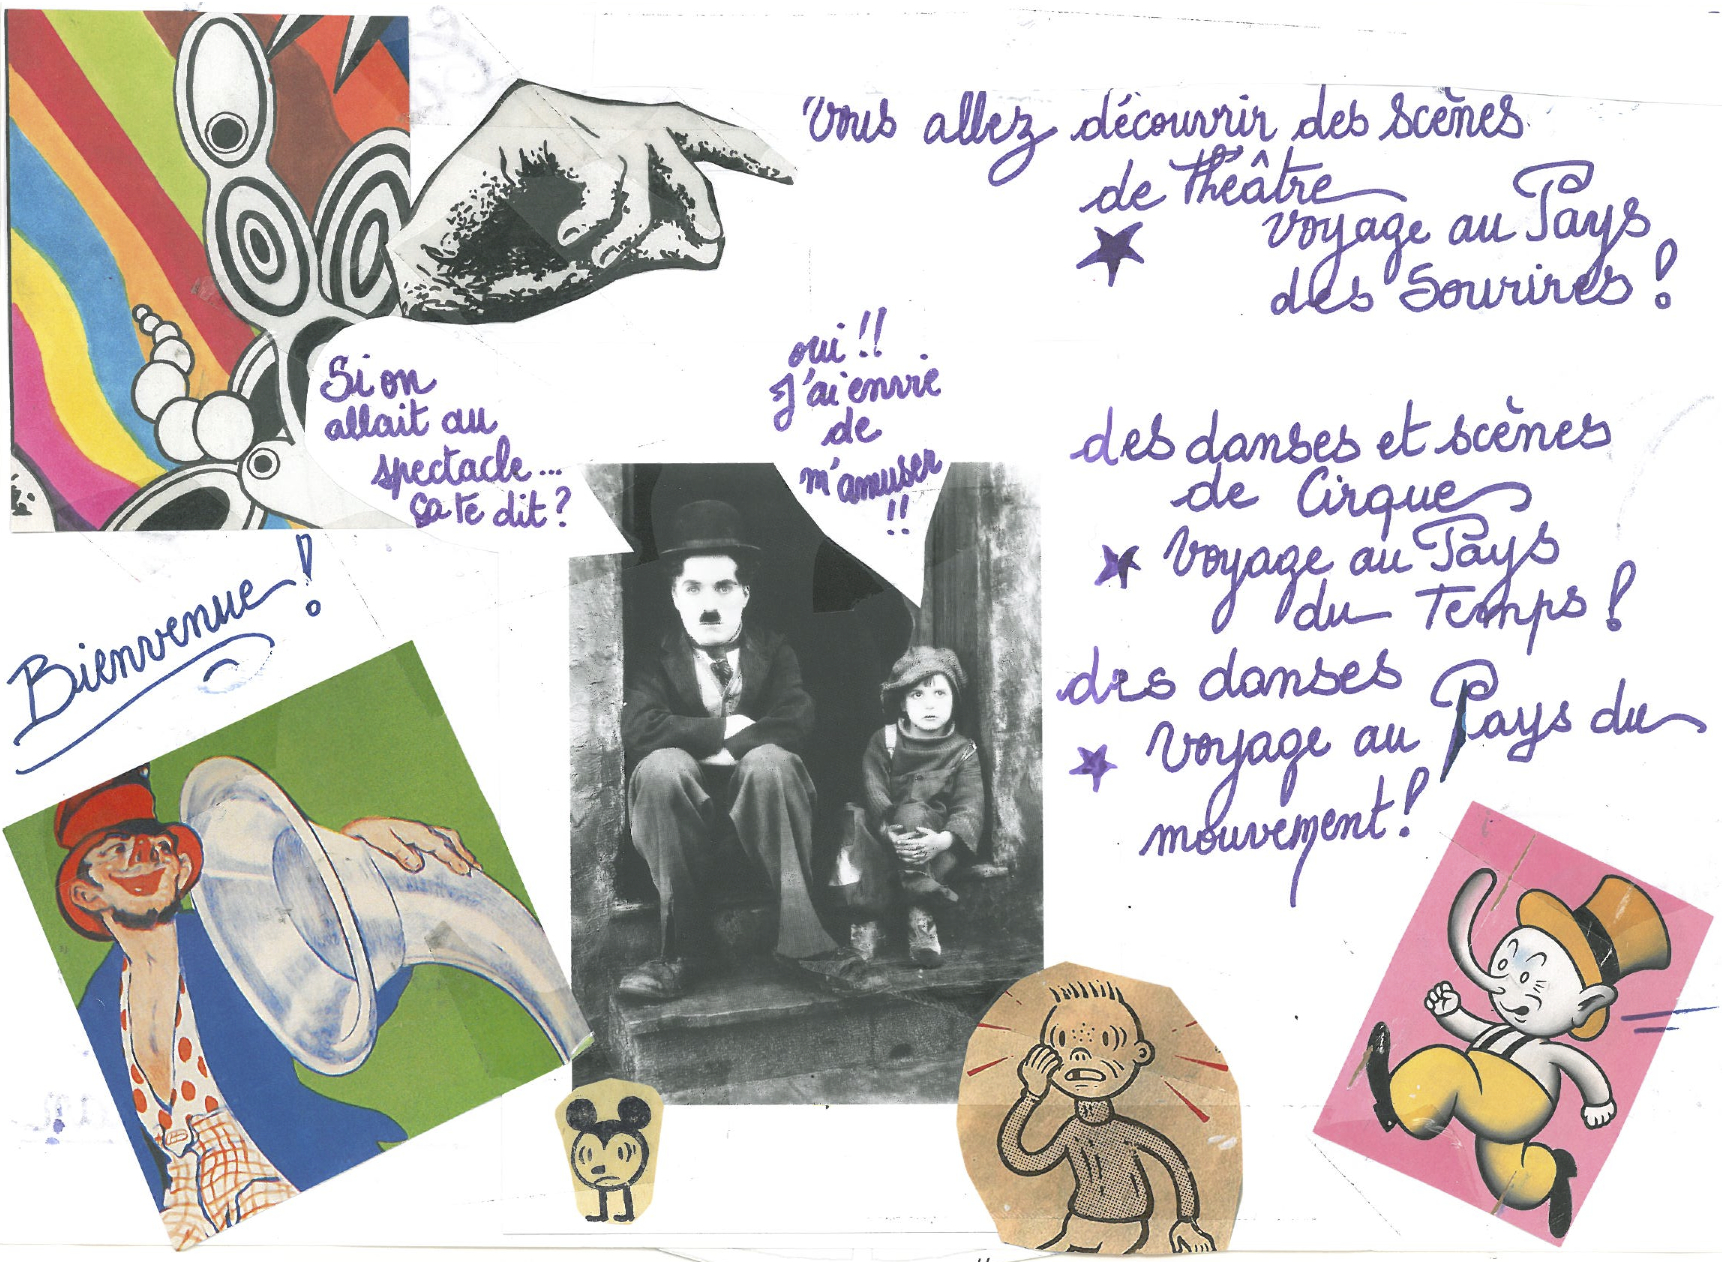 Vous allez découvrir des scènes
de théâtre
voyage au Pays
des Sourires !
oui !!
J'ai envie
de
m'amuser
!!
Si on
allait au
spectacle...
ça te dit ?
des danses et scènes
de Cirque
Voyage au Pays
du Temps !
Bienvenue !
des danses
Voyage au Pays du
mouvement !